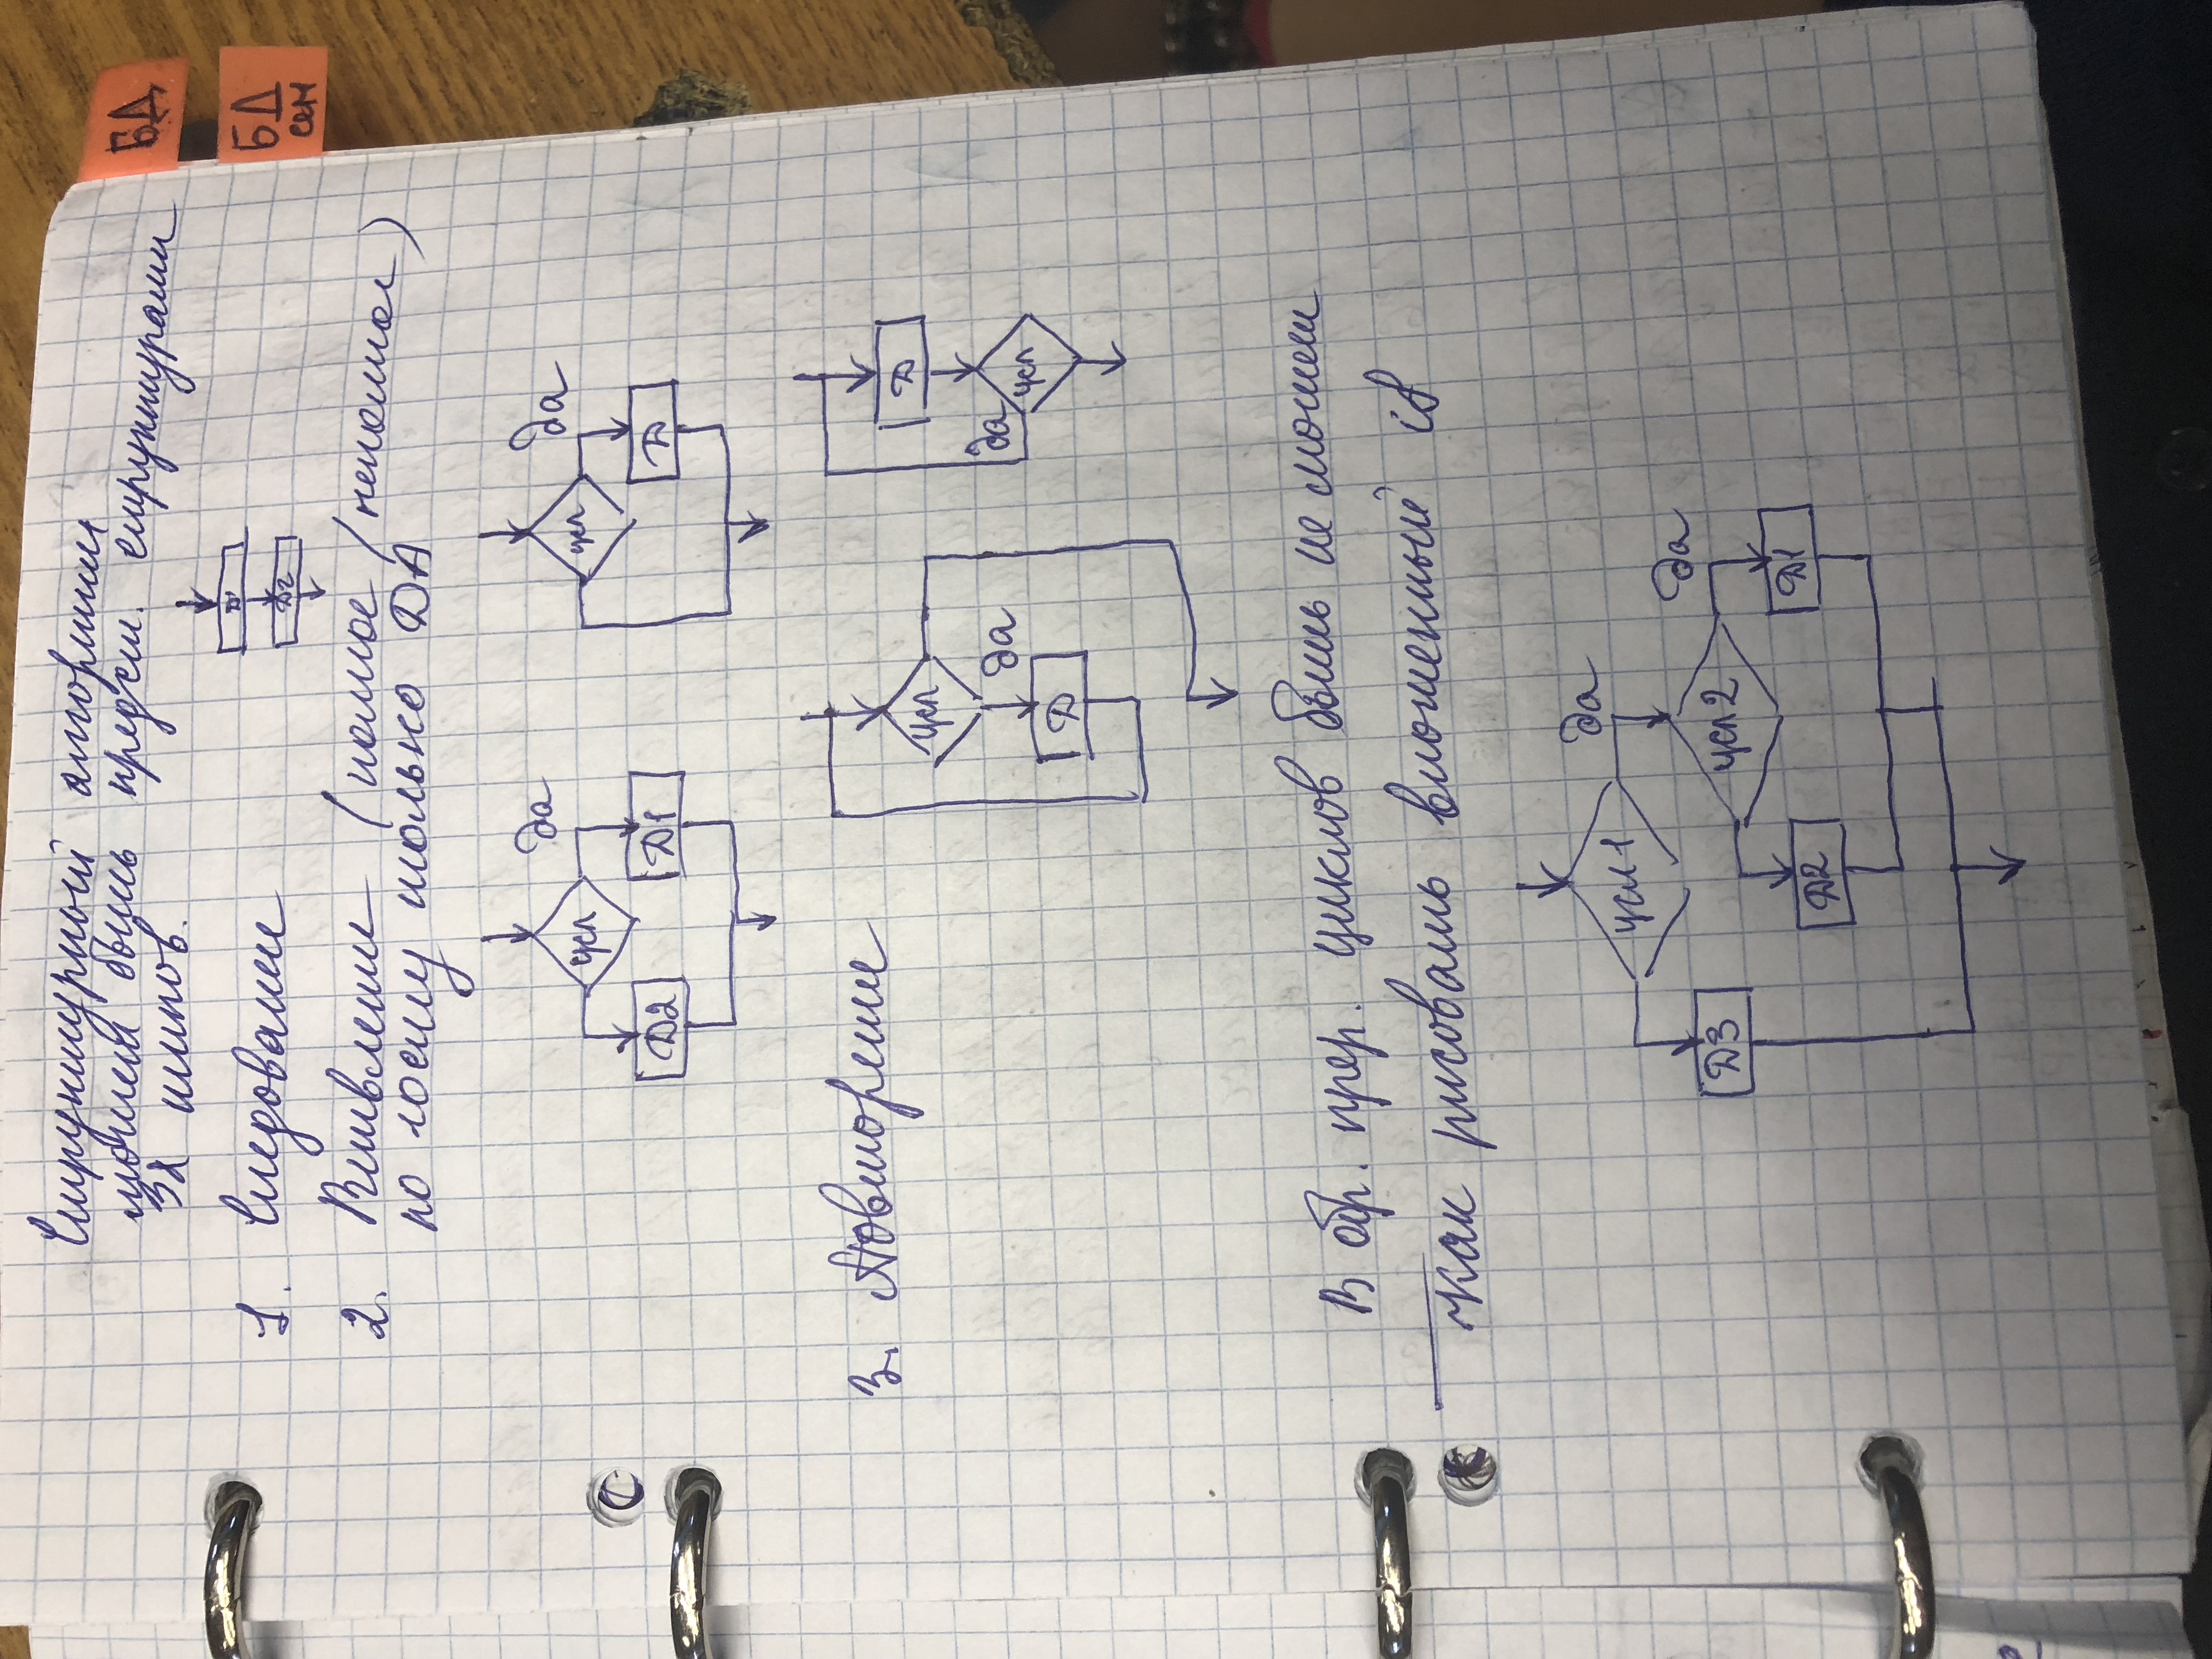 Структурный алгоритм
может быть предст. структурами
3х типов.
БД
БД
сем
1. Следование
Д1
Д2
2. Ветвление (полное / неполное)
по госту только ДА
усл да
Д2 Д1
усл да
Д
3. Повторение
усл
да
Д
Д
да
усл
В обр. прер. циклов быть не может
Как рисовать вложенный if
усл1 да
Д3
усл2 да
Д2
Д1